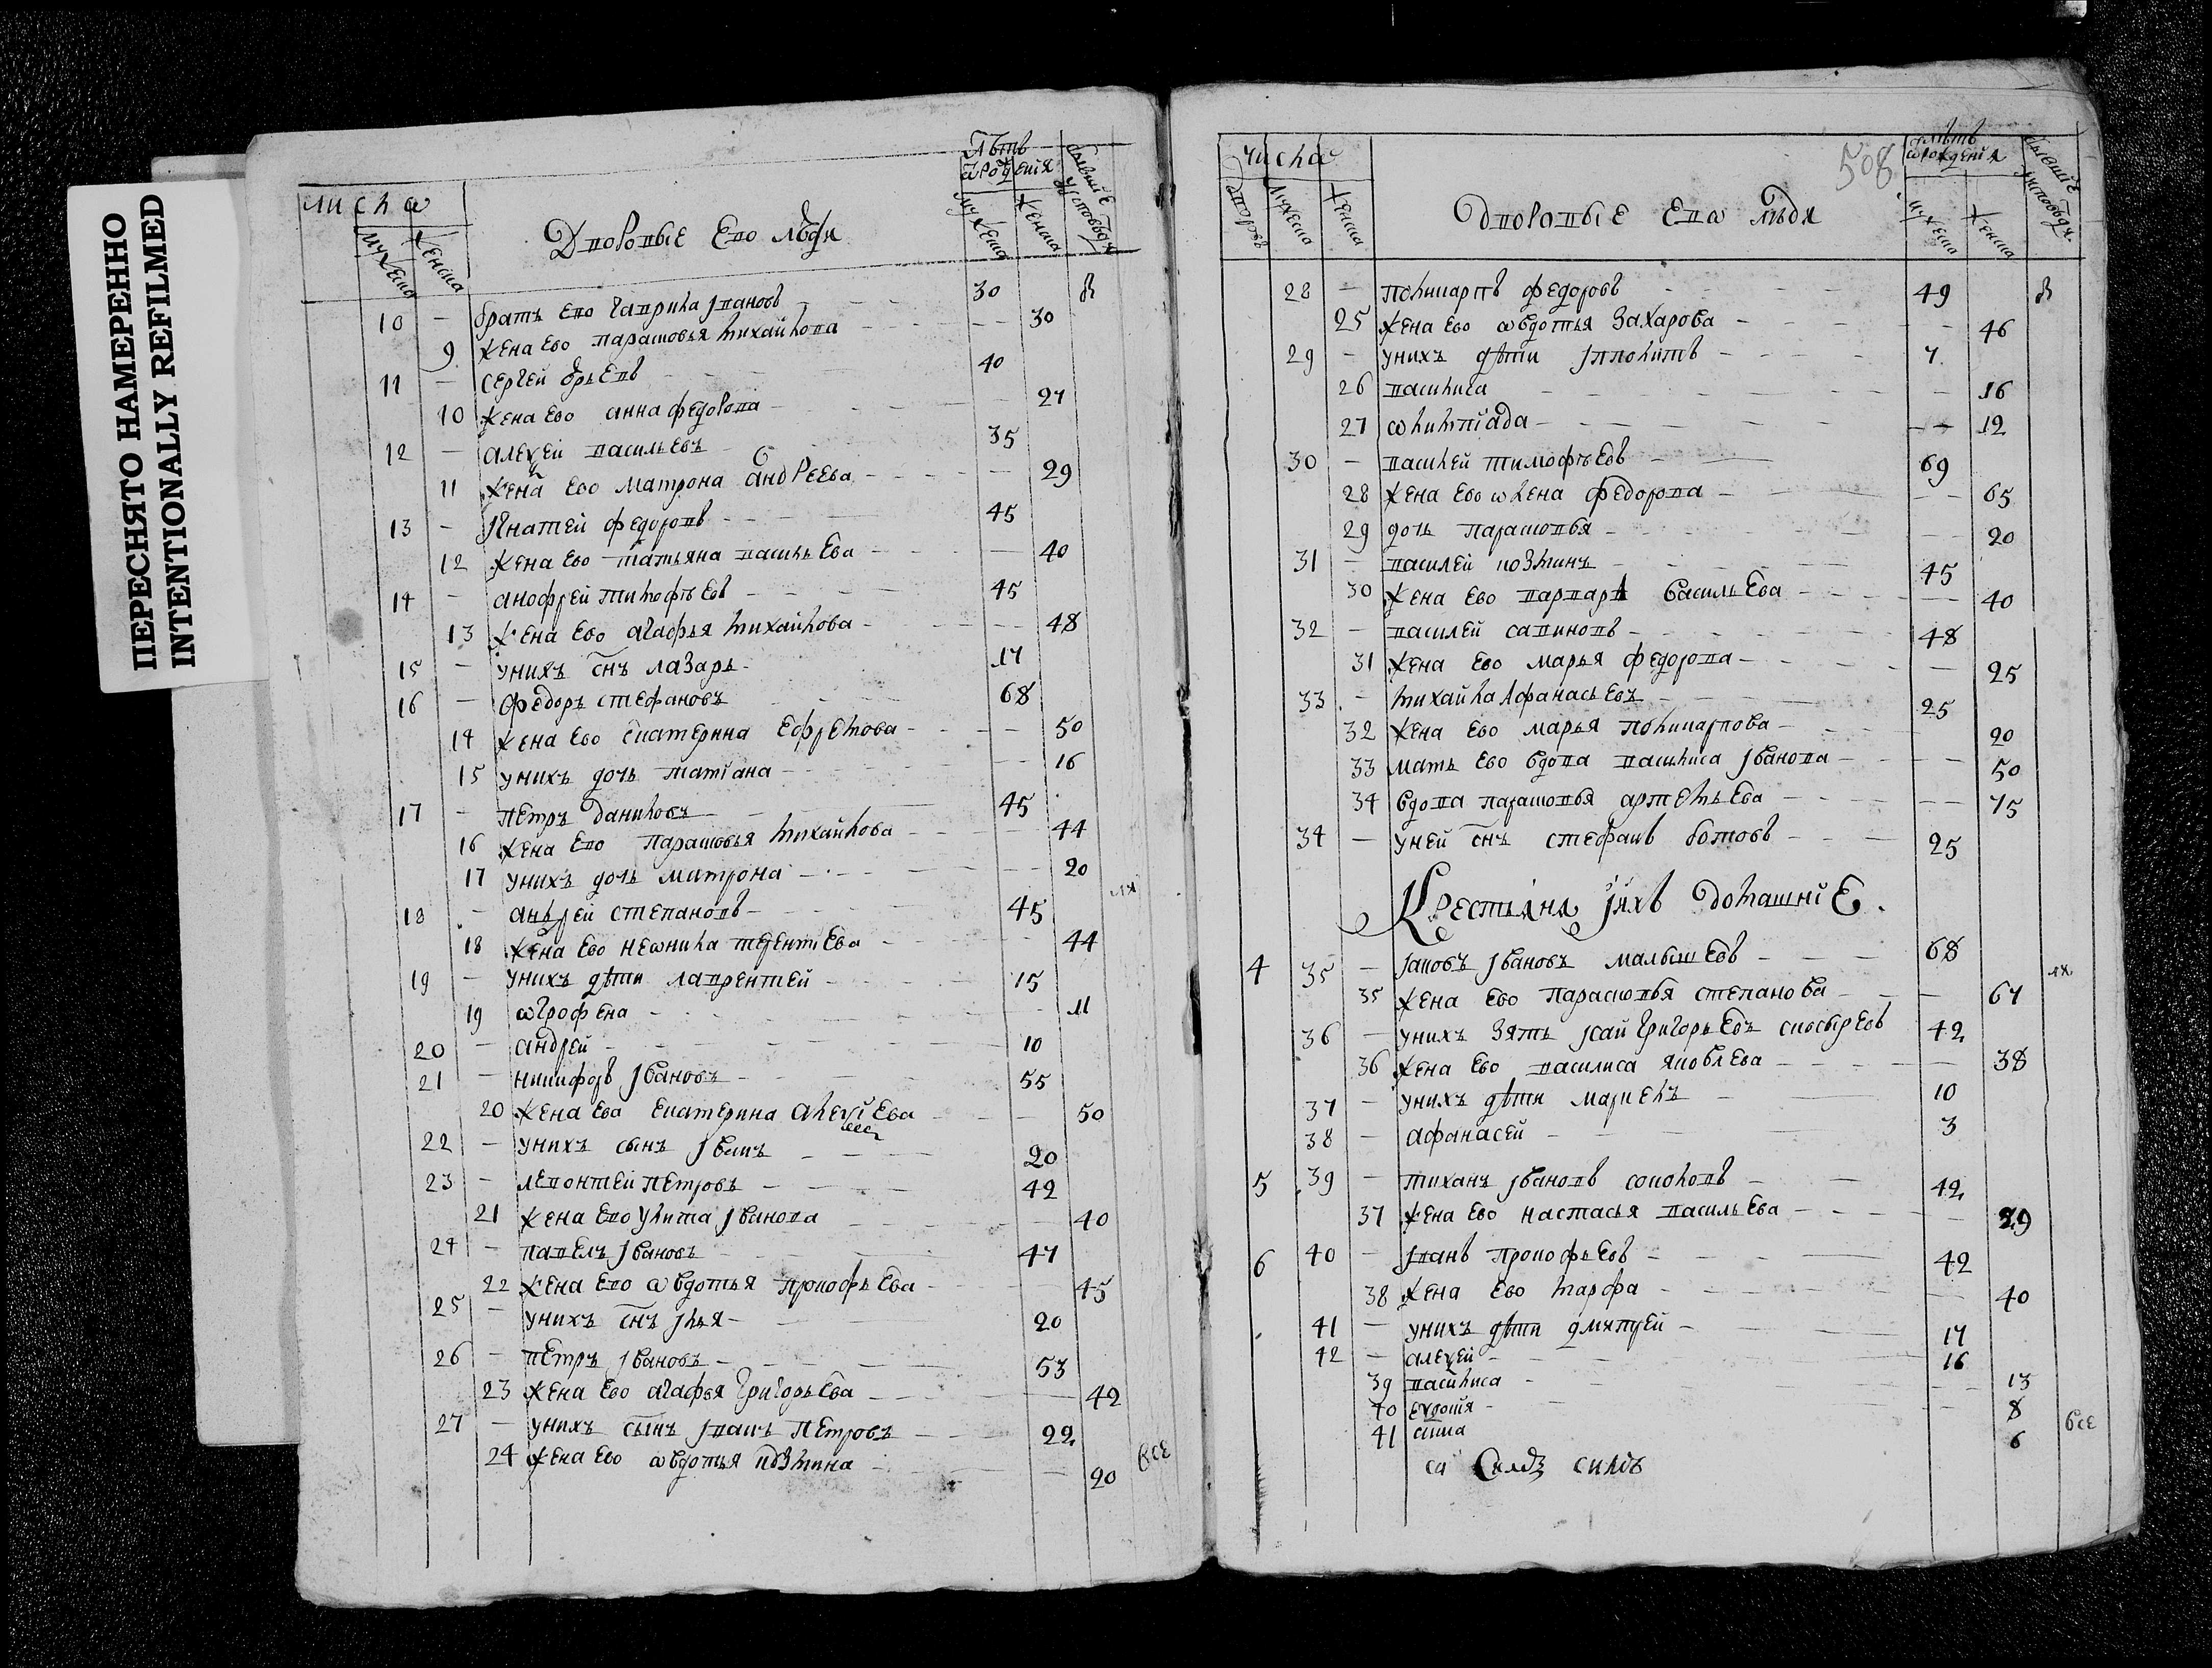 ПЕРЕСНЯТО НАМЕРЕННО
INTENTIONALLY REFILMED
числа
мужеска женска
Дворовые его люди
лѣтъ ѿ рождения
мужеска женска
бывшие у исповѣди
10 — братъ ево гаврила ивановъ 30
9 жена ево парасковья михайлова — 30
11 — сергей 40
10 жена ево анна федорова — 27
12 — алеѯей васильевъ 35
11 жена ево матрона андреева — 29
13 — игнатей федоровъ 45
12 жена ево татьяна васильева — 40
14 — анофрей тимофѣевъ 45
13 жена ево агафья михайлова — 48
15 — у нихъ снъ лазарь 17
16 — федоръ стефановъ 68
14 жена ево екатерина ефремова — 50
15 у нихъ дочь татіана — 16
17 — петръ даниловъ 45
16 жена ево парасковья михайлова — 44
17 у нихъ дочь матрона — 20
18 — андрей степановъ 45
18 жена ево неѡнила терентиева — 44
19 — у нихъ дѣти лаврентей 15
19 ѡгрофена — 11
20 — андрей 10
21 — никифоръ ивановъ 55
20 жена ева екатерина алеѯіева — 50
22 — у нихъ сынъ иванъ 20
23 — левонтей петровъ 42
21 жена ево улита иванова — 40
24 — павелъ ивановъ 47
22 жена ево ѡвдотья прокофьева — 45
25 — у нихъ снъ илья 20
26 — петръ ивановъ 53
23 жена ево агафья григорьева — 42
27 — у нихъ сынъ иванъ петровъ 22
24 жена ево ѡвдотья козмина — 20
все
числа
508
дворовъ мужеска женска
Дворовые евѡ люди
лѣтъ ѿ рождения
мужеска женска
бывшие у исповѣди
28 — поликарпъ федоровъ 49
25 жена ево ѡвдотья захарова — 46
29 — у нихъ дѣти ипполитъ 7
26 василиса — 16
27 ѡлимпіада — 12
30 — василей тимофѣевъ 69
28 жена ево ѡлена федорова — 65
29 дочь парасковья — 20
31 — василей козминъ 45
30 жена ево варвара васильева — 40
32 — василей савиновъ 48
31 жена ево марья федорова — 25
33 — михайла афанасьевъ 25
32 жена ево марья поликарпова — 20
33 мать ево вдова василиса иванова — 50
34 вдова парасковья артемьева — 75
34 — у ней снъ стефанъ 25
Крестьяня ихъ домашніе.
4 35 — іаковъ ивановъ малышевъ 68
35 жена ево парасковья степанова — 67
36 — у нихъ зять исай григорьевъ 42
36 жена ево василиса яковлева — 38
37 — у нихъ дѣти маркелъ 10
38 — афанасей 3
5 39 — тиханъ ивановъ соколовъ 42
37 жена ево настасья васильева — 29
6 40 — иванъ прокофьевъ 42
38 жена ево марфа — 40
41 — у нихъ дѣти дмитрей 17
42 — алеѯей 16
39 василиса — 13
40 — 8
41 анна 6
все